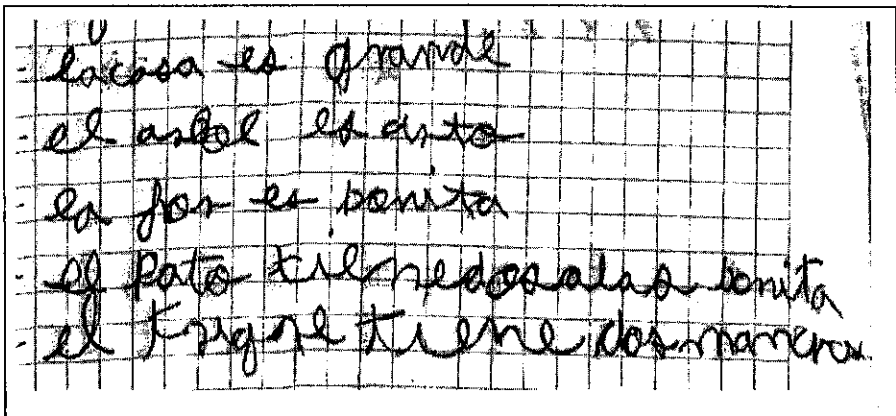 lacasa es grande
el asbol es arto
la for es bonita
el pato tiene dosalas bonita
el trigre tiene dos maneras